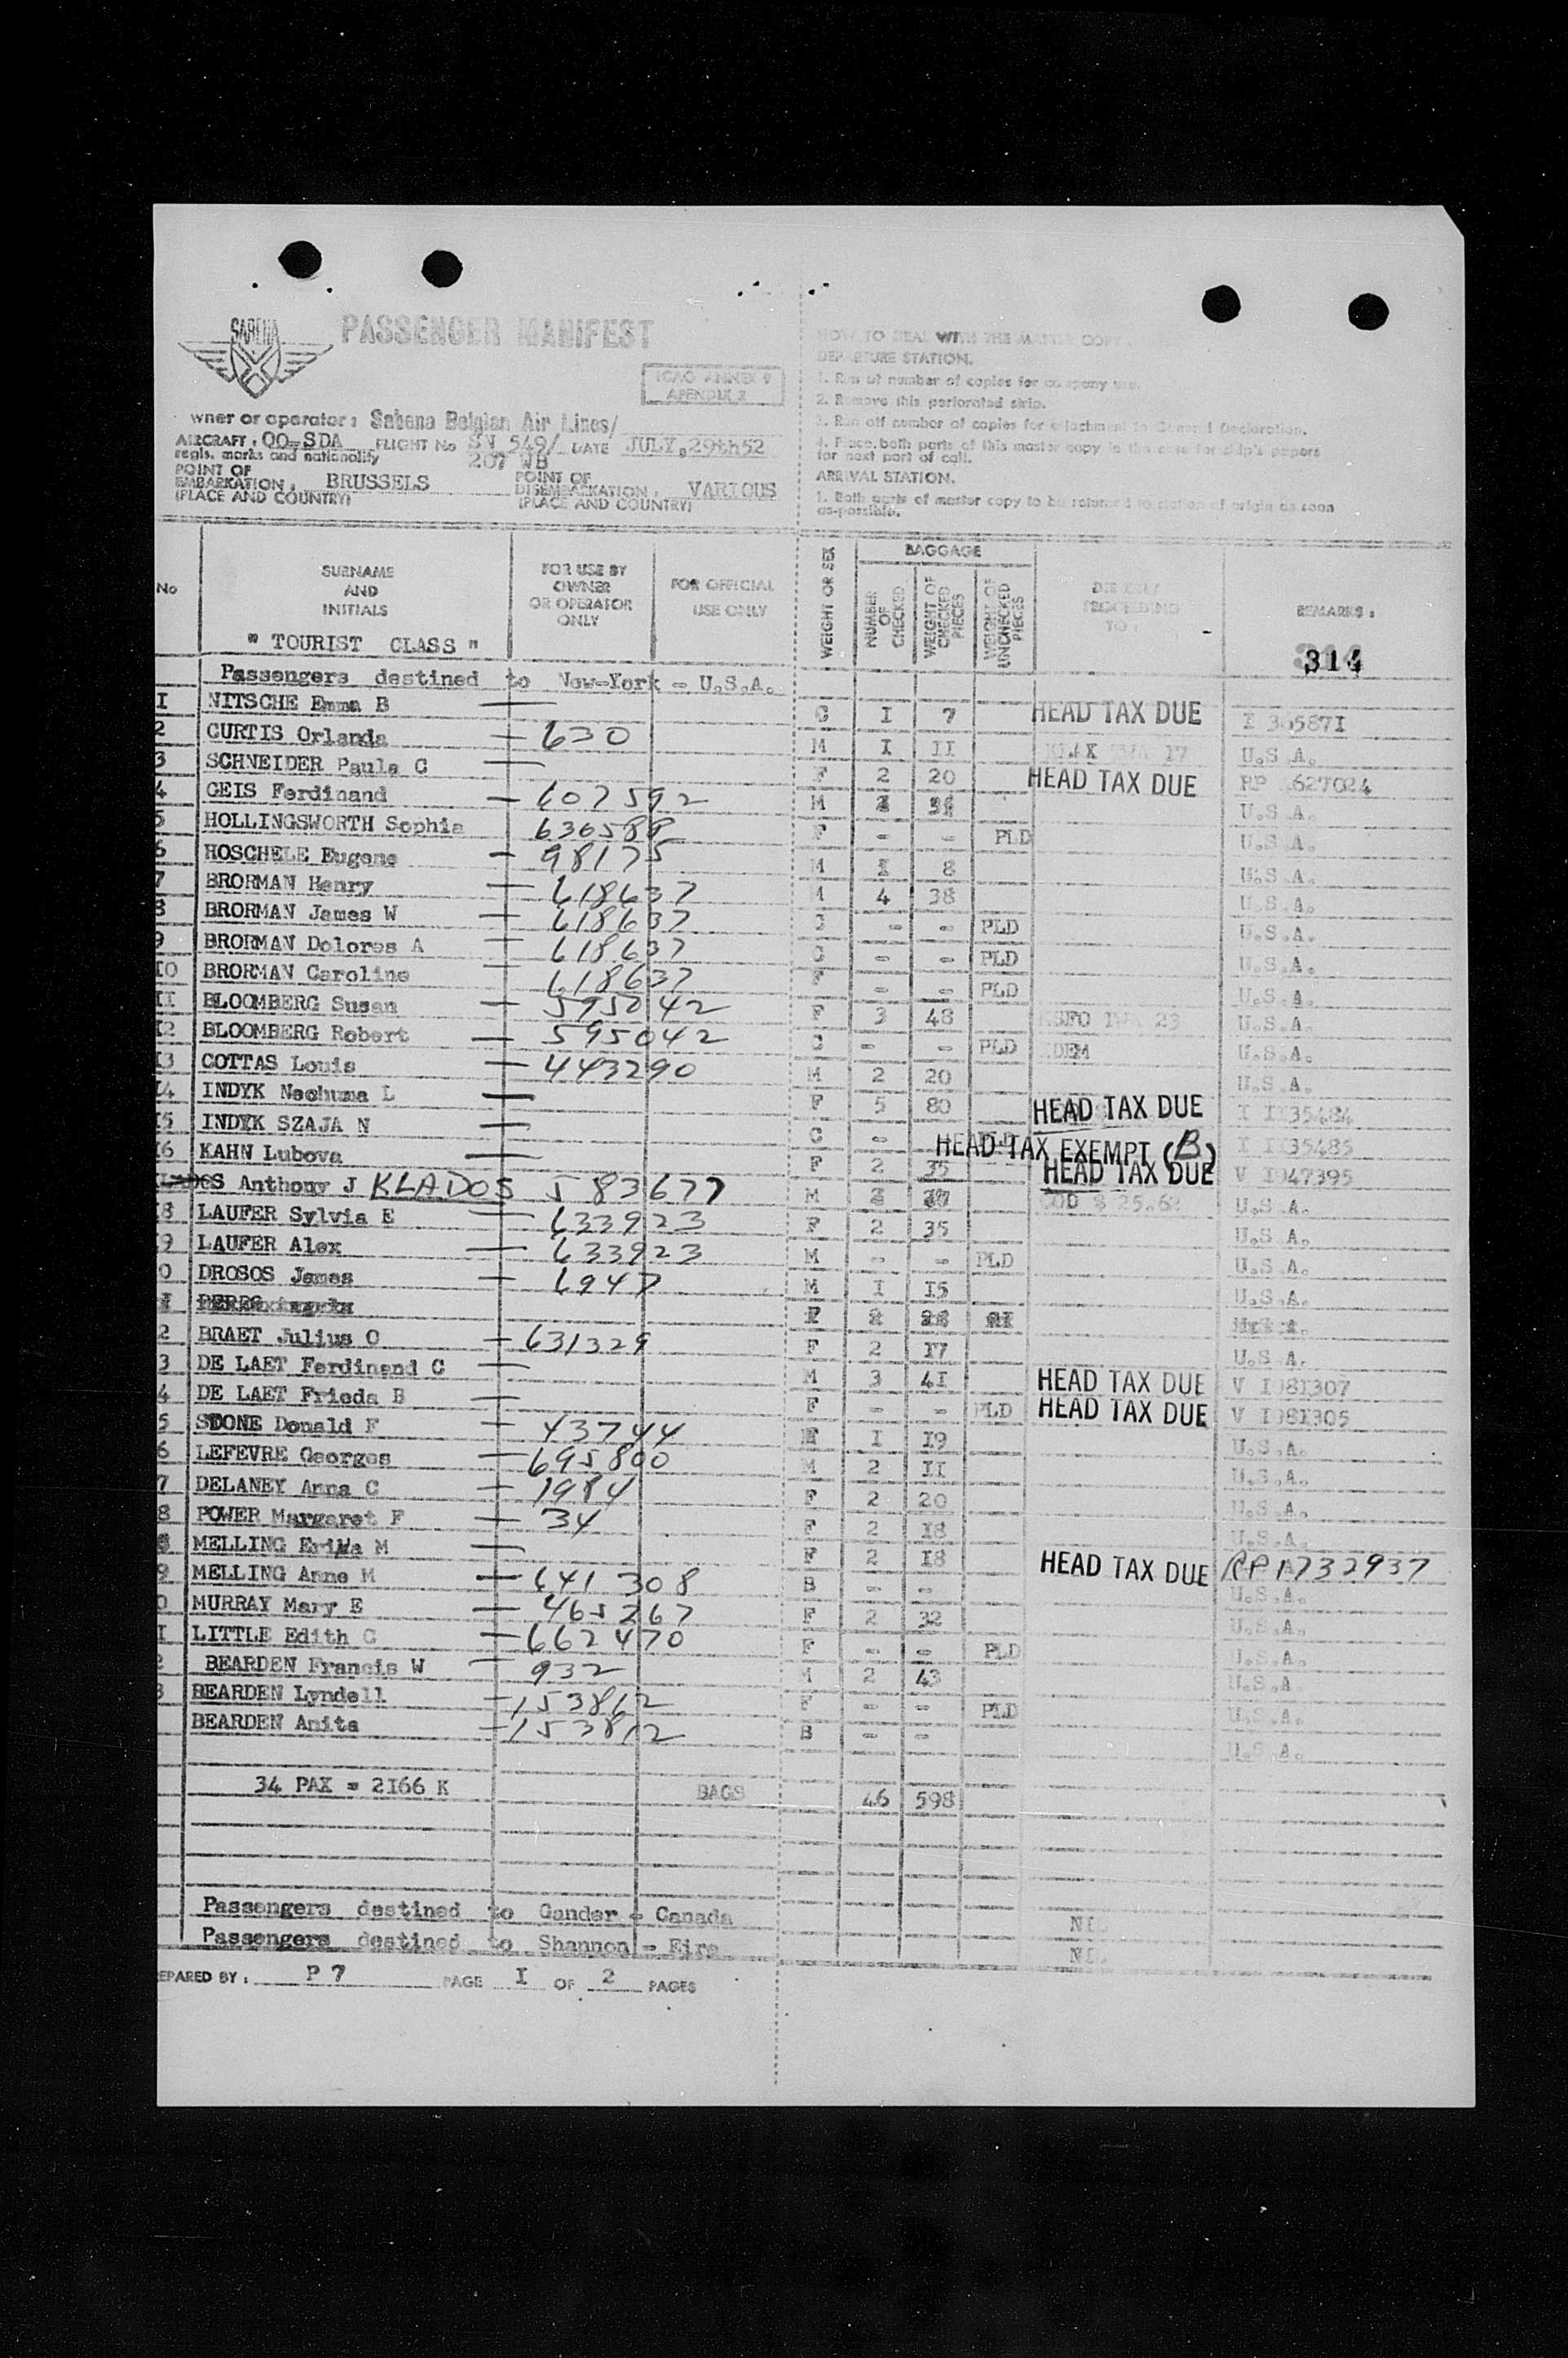 SABENA
PASSENGER MANIFEST
ICAO ANNEX 9
APENDIX 2
wner or operator: Sabena Belgian Air Lines/
AIRCRAFT: OO-SDA FLIGHT No SN 549/ DATE JULY, 29th 52
regis. marks and nationality 207 WB
POINT OF EMBARKATION: BRUSSELS POINT OF DISEMBARKATION: VARIOUS
(PLACE AND COUNTRY) (PLACE AND COUNTRY)
HOW TO DEAL WITH THE MASTER COPY.
DEPARTURE STATION.
1. Run of number of copies for company use.
2. Remove this perforated strip.
3. Run off number of copies for attachment to General Declaration.
4. Place both parts of this master copy in the case for ship's papers
for next port of call.
ARRIVAL STATION.
1. Both parts of master copy to be returned to station of origin as soon
as-possible.
No SURNAME AND INITIALS FOR USE BY OWNER OR OPERATOR ONLY FOR OFFICIAL USE ONLY WEIGHT OR SEX BAGGAGE NUMBER OF CHECKED WEIGHT OF CHECKED PIECES WEIGHT OF UNCHECKED PIECES DIRECTLY PROCEEDING TO: REMARKS:
" TOURIST CLASS " 314
Passengers destined to New-York - U.S.A.
I NITSCHE Emma B — G I 7 HEAD TAX DUE
2 CURTIS Orlanda — 630 M I II U.S.A.
3 SCHNEIDER Paula C — F 2 20 HEAD TAX DUE RP 627024
4 GEIS Ferdinand — 607592 M U.S.A.
5 HOLLINGSWORTH Sophia 636588 F - - PLD U.S.A.
6 HOSCHELE Eugene — 98175 M 8 U.S.A.
7 BRORMAN Henry — 618637 M 4 38 U.S.A.
8 BRORMAN James W — 618637 C - - PLD U.S.A.
9 BRORMAN Dolores A — 618637 C - - PLD U.S.A.
IO BRORMAN Caroline — 618637 F - - PLD U.S.A.
II BLOOMBERG Susan — 595042 F 3 48 U.S.A.
I2 BLOOMBERG Robert — 595042 C - - PLD U.S.A.
I3 COTTAS Louis — 443290 M 2 20 U.S.A.
I4 INDYK Nechuma L — F 5 80 HEAD TAX DUE I II35484
I5 INDYK SZAJA N — C - HEAD TAX EXEMPT (B) I II35485
I6 KAHN Lubova — F 2 35 HEAD TAX DUE V I047395
OS Anthony J KLADOS 583677 M COD $ 25.62 U.S.A.
I8 LAUFER Sylvia E — 633923 F 2 35 U.S.A.
I9 LAUFER Alex — 633923 M - - PLD U.S.A.
0 DROSOS James — 6947 M I I5 U.S.A.
2 BRAET Julius O — 631329 F 2 I7 U.S.A.
3 DE LAET Ferdinand C — M 3 4I HEAD TAX DUE V I08I307
4 DE LAET Frieda B — F - - PLD HEAD TAX DUE V I08I305
5 STONE Donald F — 43744 I I9 U.S.A.
6 LEFEVRE Georges — 695800 M 2 II U.S.A.
7 DELANEY Anna C — 1984 F 2 20 U.S.A.
8 POWER Margaret F — 34 F 2 I8 U.S.A.
MELLING Erika M — F 2 I8 HEAD TAX DUE RP 1732937
9 MELLING Anne M — 641308 B - - U.S.A.
0 MURRAY Mary E — 465267 F 2 32 U.S.A.
I LITTLE Edith C — 662470 F - - PLD U.S.A.
2 BEARDEN Francis W — 932 M 2 43 U.S.A.
3 BEARDEN Lyndell — 153812 F - - PLD U.S.A.
BEARDEN Anita — 153812 B - - U.S.A.
34 PAX = 2I66 K BAGS 46 598
Passengers destined to Gander - Canada NIL
Passengers destined to Shannon - Eire NIL
EPARED BY: P 7 PAGE I OF 2 PAGES